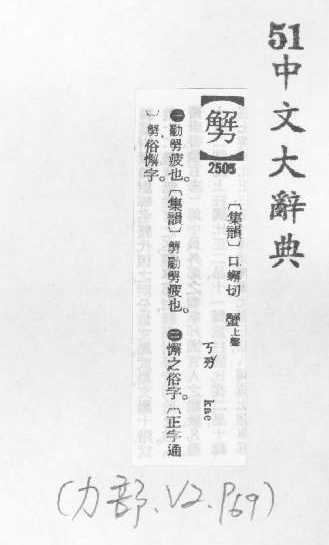 51中文大辭典
2505
〔集韻〕口蠏切 蟹上聲
ㄎㄞˇ kae
㊀疲也。〔集韻〕疲也。㊁懈之俗字。〔正字通
〕俗懈字。
(力部.V2.P69)